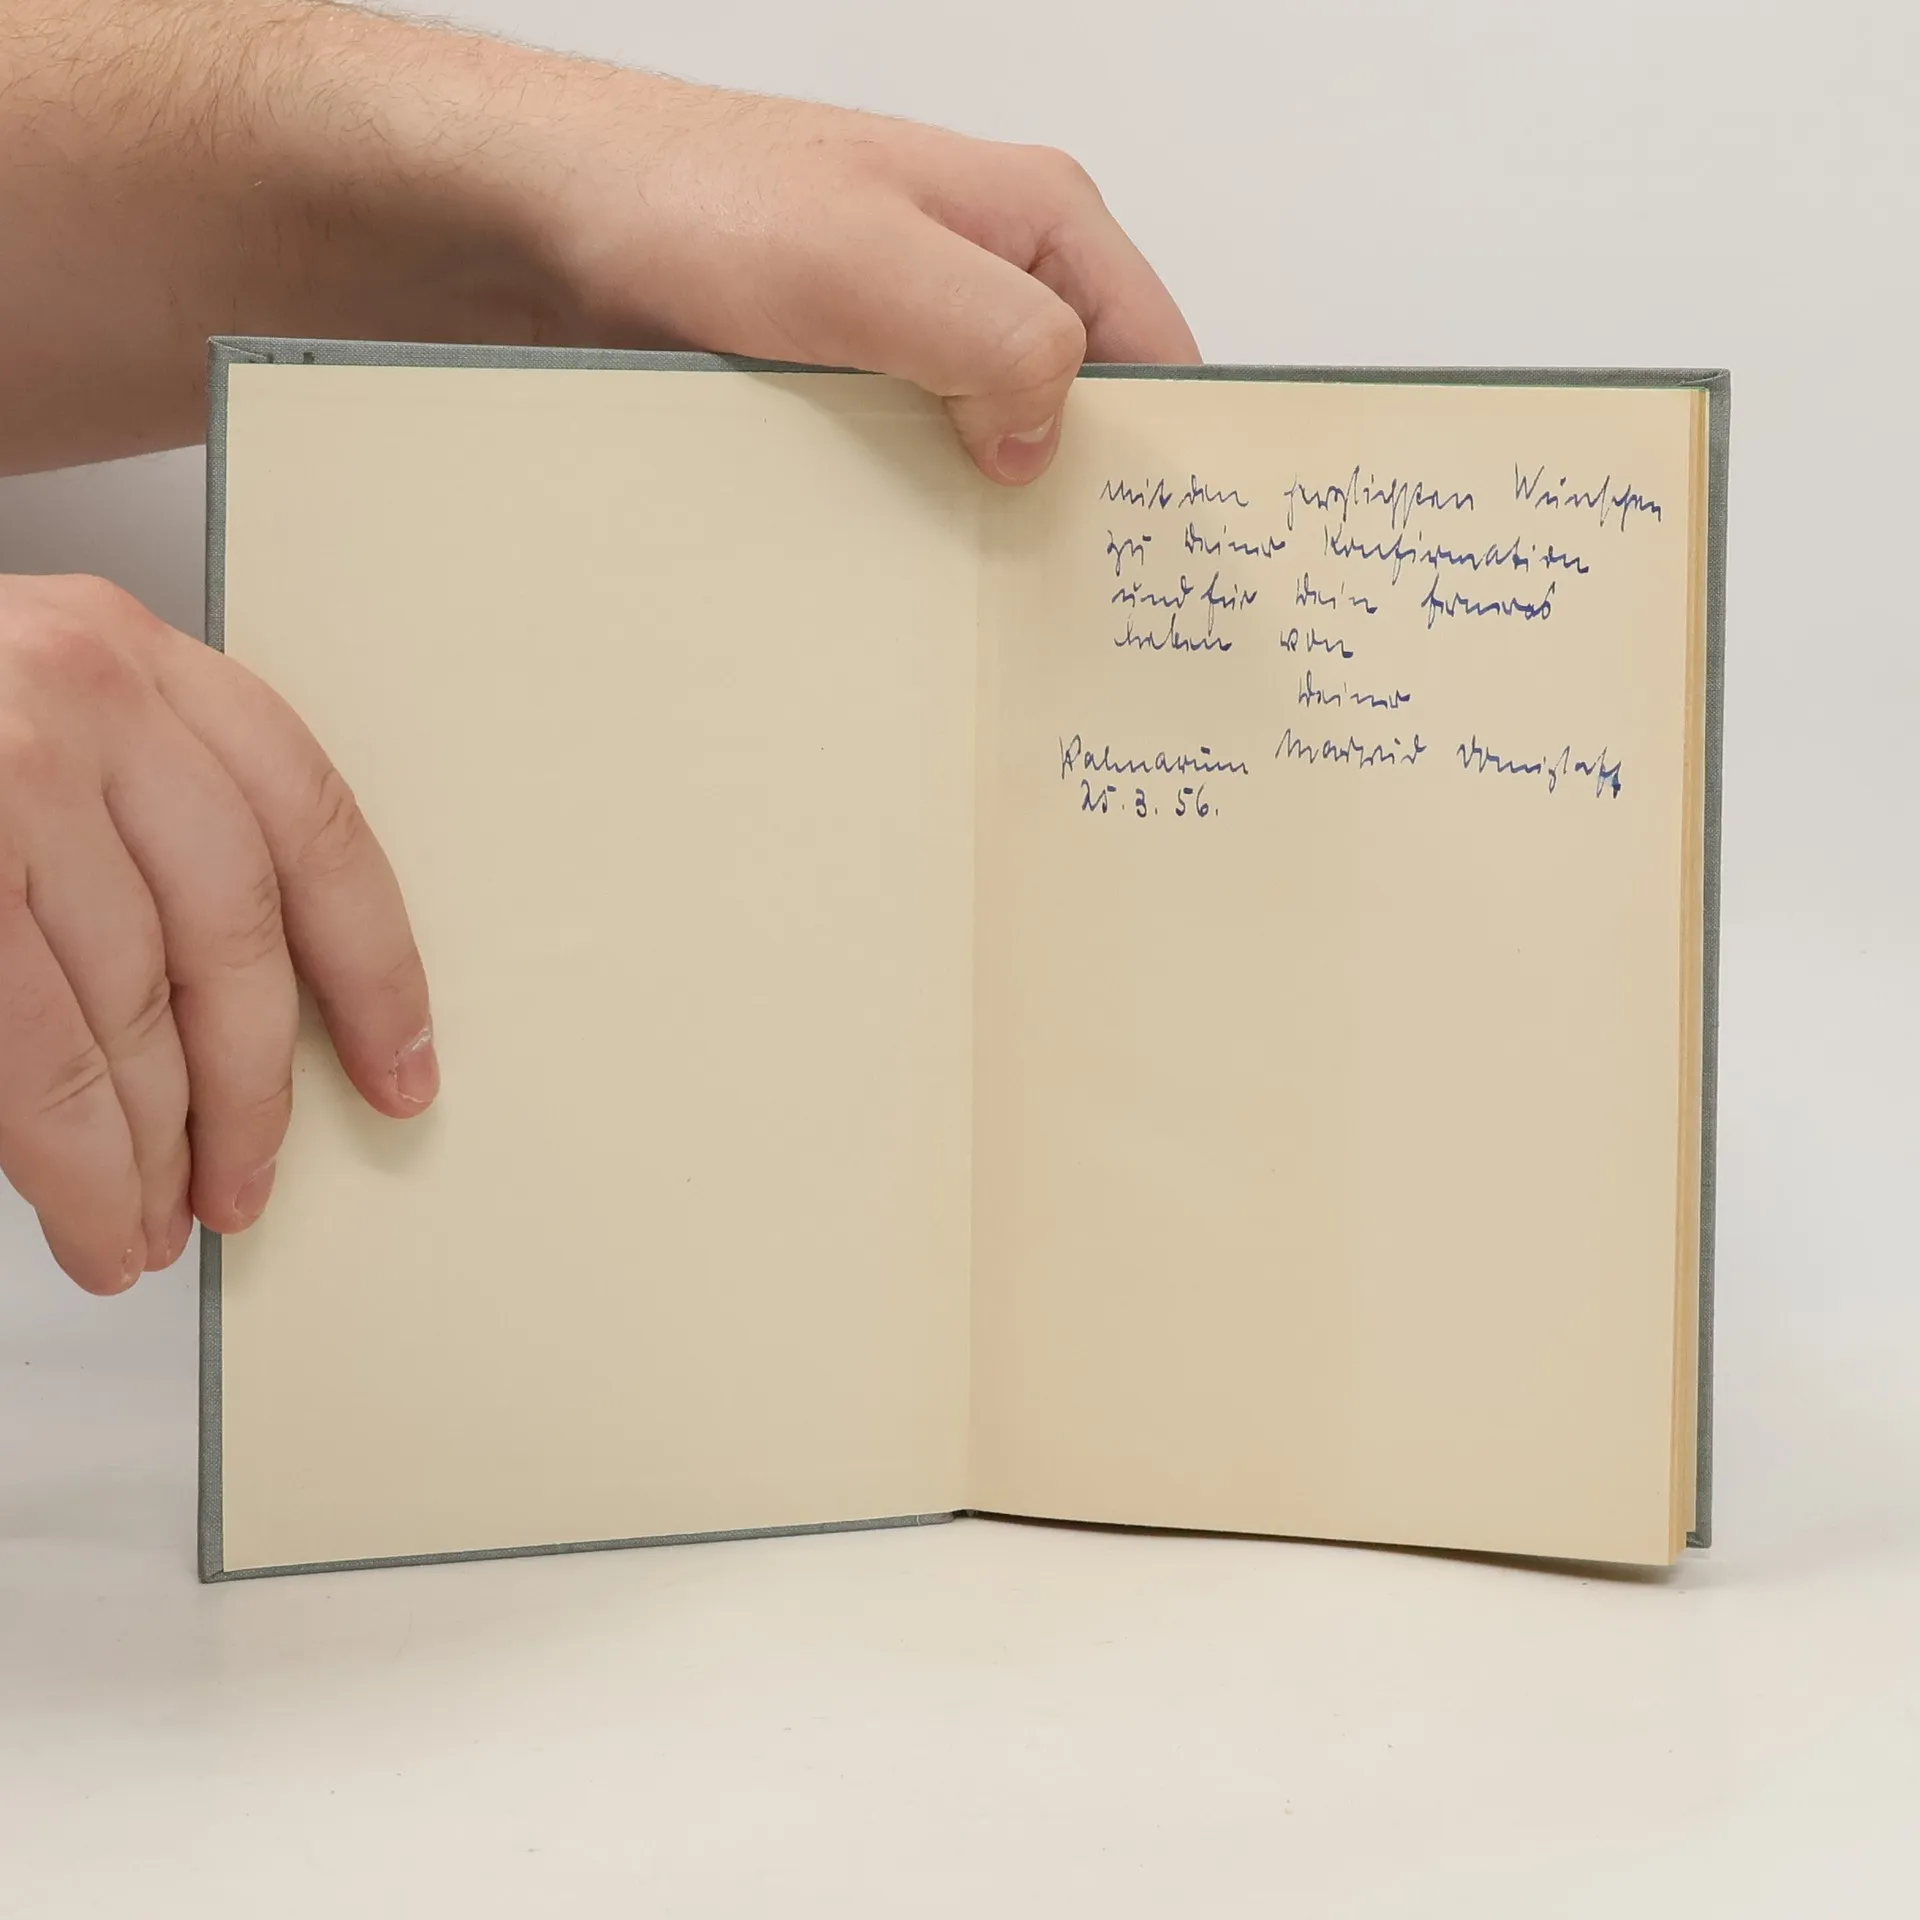 Mit den herzlichsten Wünschen
zu Deiner Konfirmation
und für Dein ferneres
Leben von
Deiner
Palmarum
25.3.56.